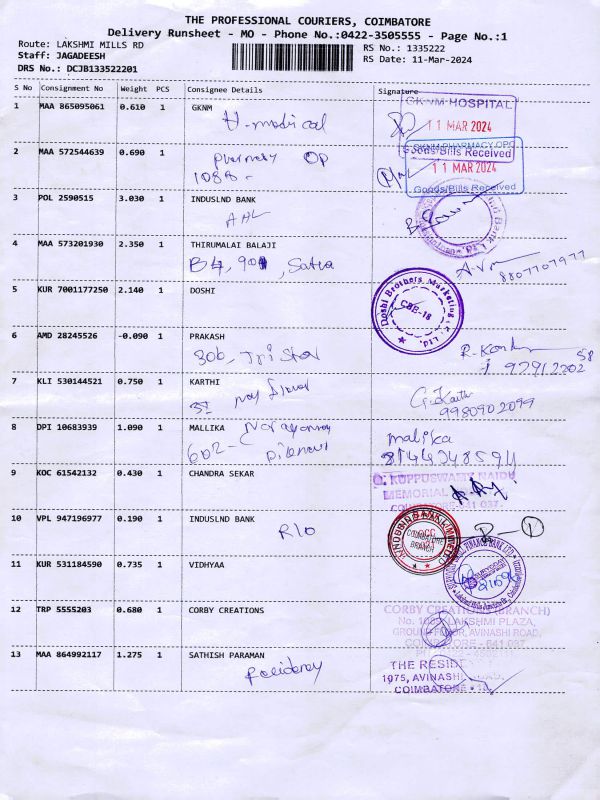 THE PROFESSIONAL COURIERS, COIMBATORE
Delivery Runsheet - MO - Phone No.:0422-3505555 - Page No.:1
Route: LAKSHMI MILLS RD
RS No.: 1335222
Staff: JAGADEESH
RS Date: 11-Mar-2024
DRS No.: DCJB133522201
S No Consignment No Weight PCS Consignee Details Signature
1 MAA 865095061 0.610 1 GKNM
GKNM HOSPITAL
11 MAR 2024
Goods/Bills Received
2 MAA 572544639 0.690 1 pharmacy OP
1088 -
GKNM PHARMACY OPC
11 MAR 2024
Goods/Bills Received
3 POL 2590515 3.030 1 INDUSLND BANK
AHL
4 MAA 573201930 2.350 1 THIRUMALAI BALAJI
8807707977
5 KUR 7001177250 2.140 1 DOSHI
Doshi Brothers Marketing
CBE-18
6 AMD 28245526 -0.090 1 PRAKASH
306, Tri Star
7 KLI 530144521 0.750 1 KARTHI
9980902099
8 DPI 10683939 1.090 1 MALLIKA
602-C
malika
9 KOC 61542132 0.430 1 CHANDRA SEKAR
KUPPUSWAMY NAIDU
MEMORIAL
10 VPL 947196977 0.190 1 INDUSLND BANK
RIO
COIMBATORE
BRANCH
11 KUR 531184590 0.735 1 VIDHYAA
12 TRP 5555203 0.680 1 CORBY CREATIONS
CORBY CREATIONS (BRANCH)
LAKSHMI PLAZA,
GROUND FLOOR, AVINASHI ROAD,
COIMBATORE - 641 037
13 MAA 864992117 1.275 1 SATHISH PARAMAN
Residency
THE RESIDE
1075, AVINASHI ROAD,
COIMBATORE